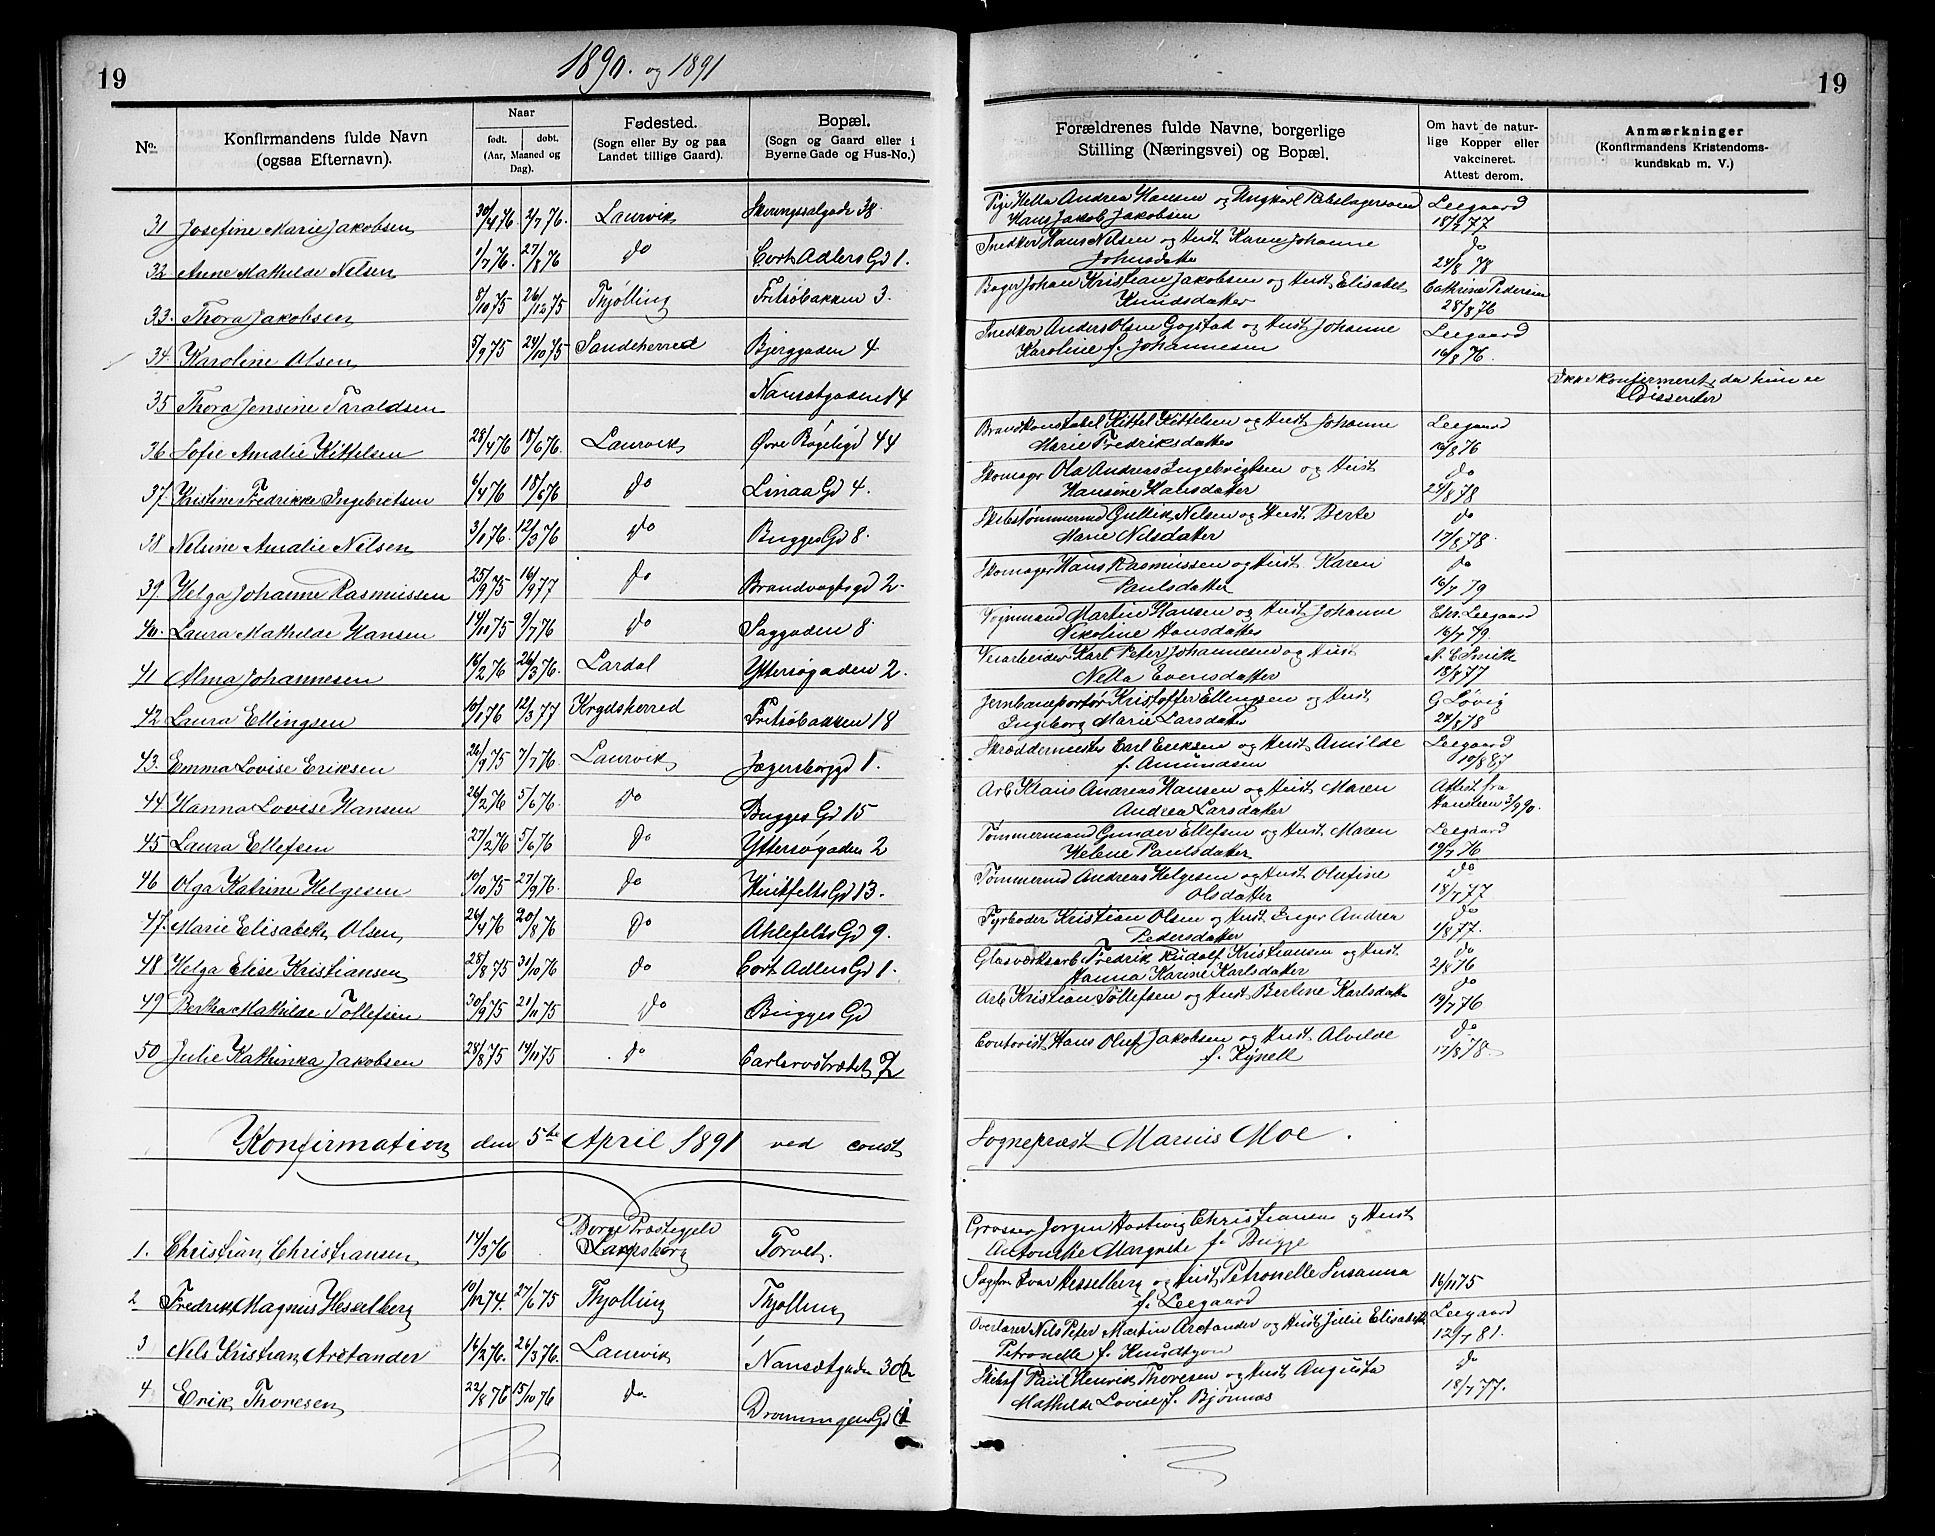 19
1890. og 1891
19
No.
Konfirmandens fulde Navn
(ogsaa Efternavn).
Naar
født. døbt.
(Aar, Maaned og
Dag).
Fødested.
(Sogn eller By og paa
Landet tillige Gaard).
Bopæl.
(Sogn og Gaard eller i
Byerne Gade og Hus-No.)
Forældrenes fulde Navne, borgerlige
Stilling (Næringsvei) og Bopæl.
Om havt de natur-
lige Kopper eller
vakcineret.
Attest derom.
Anmærkninger
(Konfirmandens Kristendoms-
kundskab m. V.)
31 Josefine Marie Jakobsen 30/4 76 2/7 76. Laurvik Skiringssalgade 38. Pige Hella Andrea Hansen og Ungkarl Rebslagersven Leegaard
Hans Jakob Jakobsen 18/7 77
32 Anne Mathilde Nelsen 1/7 76. 27/8 76 do Cort Adlers Gd 1. Snedker Hans Nilsen og Hust. Karen Johanne do
Johnsdatter 24/8 78
33. Thora Jakobsen 8/10 75 26/12 75 Thjølling Fritsøbakken 3. Bager Johan Kristian Jakobsen og Hust. Elisabet Cathrine Pedersen
Knudsdatter 28/8 76
34. Karoline Olsen 5/9 75 24/10 75 Sandeherred Bjerggaden 4 Snedker Anders Olsen Gogstad og Hust. Johanne Leegaard
Karoline f. Johannesen 16/8 76.
35 Thora Jensine Taraldsen Nansetgaden 14 Ikke konfirmeret, da hun er
Dissenter
36 Sofie Amalie Kittelsen 28/4 76 18/6 76. Laurvik Øvre Bøgeligd 44 Brandkonstabel Kittel Kittelsen og Hust. Johanne Leegaard
Marie Fredriksdatter 16/8 76
37 Kristine Fredrikke Ingebretsen 6/4 76 18/6 76 do Linaa Gd 4. Skomager Ola Andreas Ingebrigtsen og Hust do
Hansine Hansdatter 24/8 78
38 Nelsine Amalie Nelsen 3/1 76. 12/3 76 do Bugges Gd 8. Skibstømmermd Gullik Nelsen og Hust. Berte do
Marie Nilsdatter 17/8 78.
39. Helga Johanne Rasmussen 25/9 75 16/9 77 do Brandvagtsgd 2. Skomager Hans Rasmussen og Hust. Karen do
Paulsdatter 16/7 79
40. Laura Mathilde Hansen 14/11 75 9/7 76 do Saggaden 8. Vognmand Martin Hansen og Hust Johanne Chr. Leegaard
Nikoline Hansdatter 16/7 79.
41 Alma Johannesen 16/2 76 26/3 76. Lardal Yttersøgaden 2. Verarbeider Karl Peter Johannesen og Hust N. C Smith
Nella Evensdatter 18/8 77
42 Laura Ellingsen 10/1 76 12/3 77 Krydsherred Fritsøbakken 18 Jernbaneportør Kristoffer Ellingsen og Hust G Løvig
Ingeborg Marie Larsdatter 24/8 78
43. Emma Lovise Eriksen 7/7 76 Laurvik Jægersborggd 1. Skræddermester Carl Eriksen og Hust. Amilde Leegaard
f. Amundsen 10/8 87
44 Hanna Lovise Hansen 26/2 76 5/6 76. do Bugges Gd 15 Arb Klaus Andreas Hansen og Hust. Maren Attest fra
Andrea Larsdatter Hansen 3/9 90.
45 Laura Ellefsen 27/2 76 5/6 76 do Yttersøgaden 2 Tømmermand Gunder Ellefsen og Hust. Maren Leegaard
Helene Paulsdatter 19/7 76
46 Olga Katrine Helgesen 10/10 75 27/9 76. do Huitfelts Gd 13. Tømmermd Andreas Helgesen og Hust. Olufine do
Olsdatter 18/7 77
47. Marie Elisabeth Olsen 26/4 76 20/8 76 do Ahlefelts Gd 9. Fyrbøder Kristian Olsen og Hust. Inger Andrea do
Pedersdatter 1/8 77.
48 Helga Elise Kristiansen 28/8 75 31/10 76 do Cort Adlers Gd 1. Glasværksarb. Fredrik Rudolf Kristiansen og Hust do
Hanna Karine Karlsdatter 2/8 76
49 Bertha Mathilde Tollefsen 30/9 75 21/11 75 do Bugges Gd Arb Kristian Tollefsen og Hust Bertine Karlsdatter do
19/7 76
50 Julie Kathinka Jakobsen 28/8 75 14/11 75 do Contorist Hans Oluf Jakobsen og Hust Alvilde do
f. Kynell 17/8 78.
Konfirmation den 5te April 1891 ved const Sognepræst Marius Moe.
1. Christian Christiansen 14/3 76 Borge Præstegjeld
Sarpsborg Torvet. Grosser Jørgen Hartvig Christiansen og Hust
Antonette Margrete f. Bugge
2 Fredrik Magnus Hesselberg 10/12 74. 27/6 75 Thjølling Thjølling Sagfører Ivar Hesselberg og Hust Petronelle Susanna 16/11 75
f. Leegaard
3 Nils Kristian Arctander 16/2 76. 26/3 76. Laurvik Nansetgaden 30 Overlærer Nils Peter Martin Arctander og Hust Julie Elisabeth Leegaard
Petronelle f. Knudtzon 12/7 81.
4 Erik Thoresen 22/8 76 15/10 76 do. Dronningens Gd 1 Skibsf Paul Henrik Thoresen og Hust Augusta do
Mathilde Lovise f. Bjønnas 18/7 77.